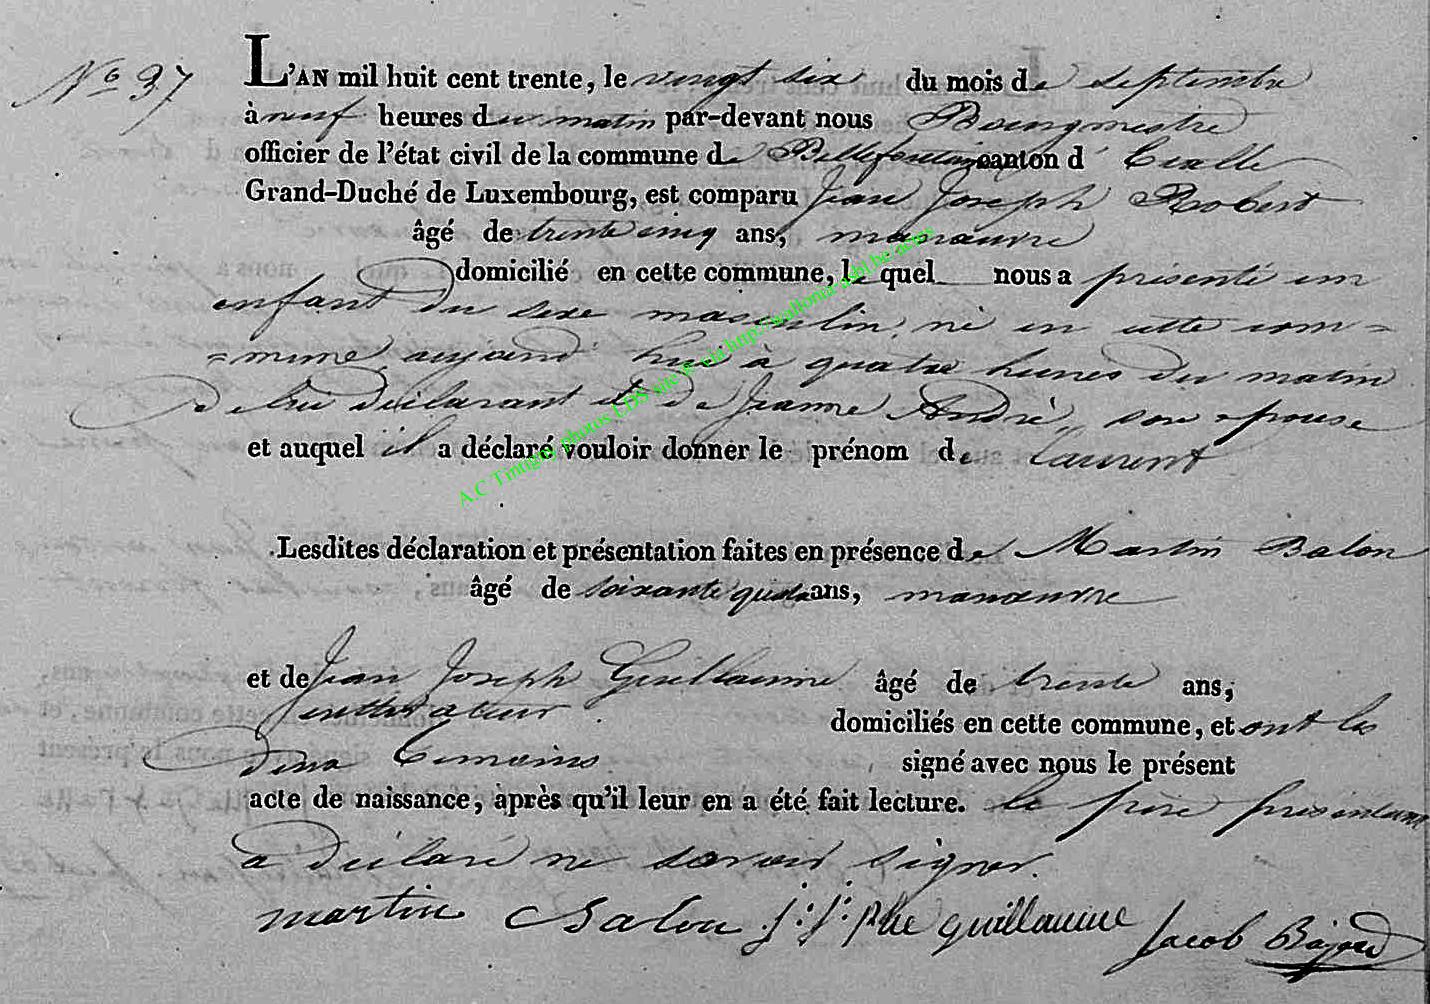 No 37
L'AN mil huit cent trente, le vingt six du mois de septembre
à neuf heures du matin par-devant nous Bourgmestre
officier de l'état civil de la commune de Bellefontaine canton d'
Grand-Duché de Luxembourg, est comparu Jean Joseph Robert
âgé de trente cinq ans, manœuvre
domicilié en cette commune, le quel nous a présenté un
enfant du sexe masculin, né en cette com=
=mune, aujourd'hui à quatre heures du matin
de lui déclarant et de Jeanne André, son épouse
et auquel il a déclaré vouloir donner le prénom de Laurent
Lesdites déclaration et présentation faites en présence de Martin Balon
âgé de soixante ans, manœuvre
et de Jean Joseph Guillaume âgé de trente ans,
cultivateur domiciliés en cette commune, et ont les
deux temoins signé avec nous le présent
acte de naissance, après qu'il leur en a été fait lecture. le père présentant
a déclaré ne savoir signer.
martin Balon J: J: phe guillaume Jacob
A.C Tintigny photos LDS site & via http://wallonia-asbl.be/actes